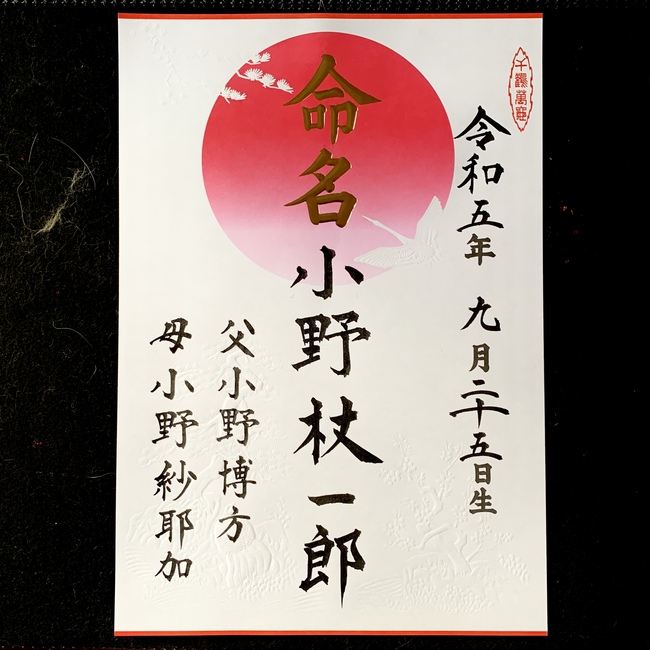 千鶴萬亀
令和五年 九月二十五日生
命名
小野杖一郎
父小野博方
母小野紗耶加